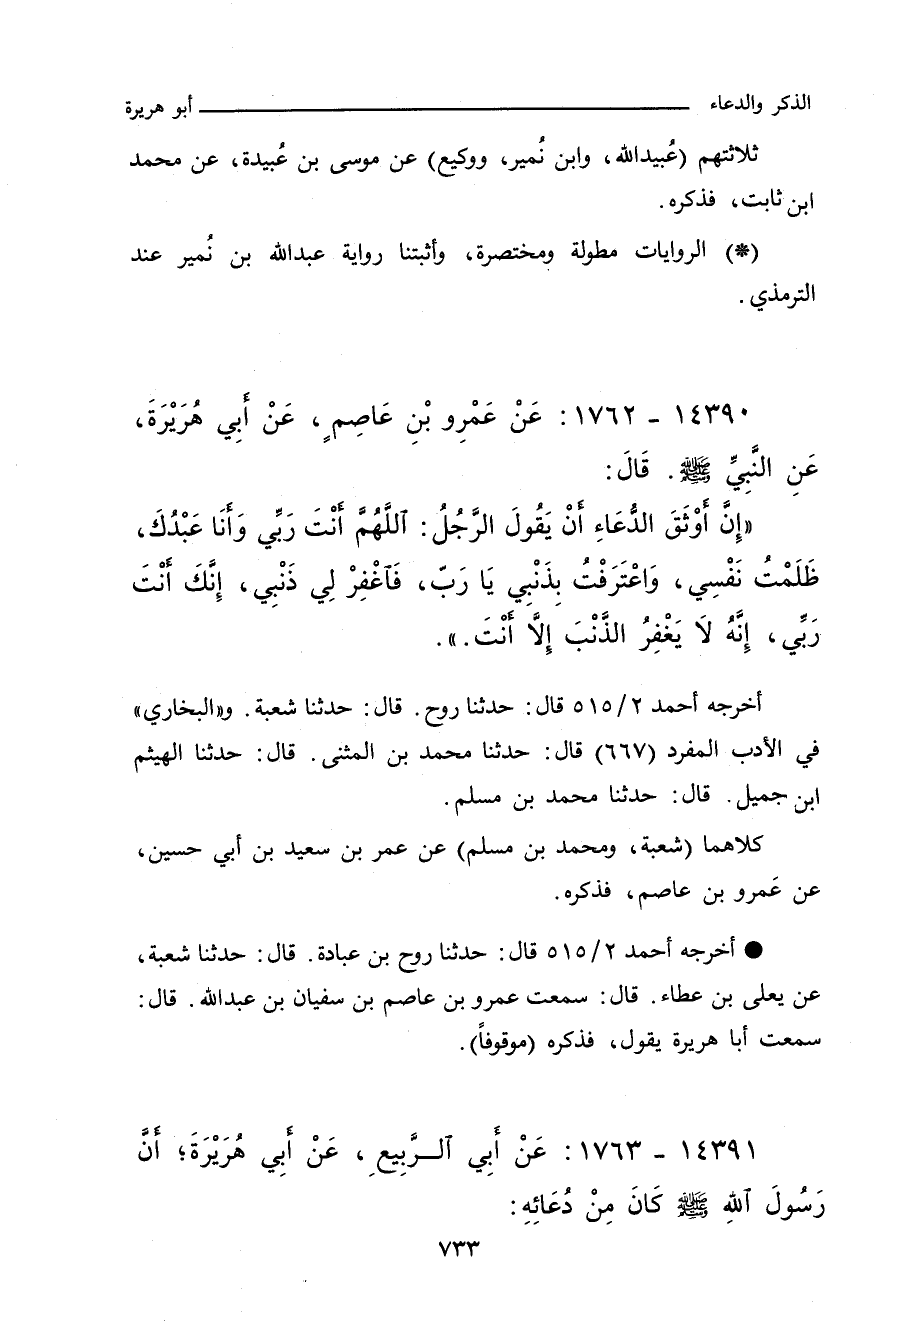 الذكر والدعاء ــــــــــــــــــــ أبو هريرة
ثلاثتهم (عُبيدالله، وابن نُمير، ووكيع) عن موسى بن عُبيدة، عن محمد
ابن ثابت، فذكره.
(*) الروايات مطولة ومختصرة، وأثبتنا رواية عبدالله بن نُمير عند
الترمذي.
١٤٣٩٠ - ١٧٦٢: عَنْ عَمْرِو بْنِ عَاصِمٍ، عَنْ أَبِي هُرَيْرَةَ،
عَنِ النَّبِيِّ ﷺ. قَالَ:
«إِنَّ أَوْثَقَ الدُّعَاءِ أَنْ يَقُولَ الرَّجُلُ: ٱللَّهُمَّ أَنْتَ رَبِّي وَأَنَا عَبْدُكَ،
ظَلَمْتُ نَفْسِي، وَاعْتَرَفْتُ بِذَنْبِي يَا رَبّ، فَٱغْفِرْ لِي ذَنْبِي، إِنَّكَ أَنْتَ
رَبِّي، إِنَّهُ لَا يَغْفِرُ الذَّنْبَ إِلَّا أَنْتَ.».
أخرجه أحمد ٥١٥/٢ قال: حدثنا روح. قال: حدثنا شعبة. و«البخاري»
في الأدب المفرد (٦٦٧) قال: حدثنا محمد بن المثنى. قال: حدثنا الهيثم
ابن جميل. قال: حدثنا محمد بن مسلم.
كلاهما (شعبة، ومحمد بن مسلم) عن عمر بن سعيد بن أبي حسين،
عن عَمرو بن عاصم، فذكره.
● أخرجه أحمد ٥١٥/٢ قال: حدثنا روح بن عبادة. قال: حدثنا شعبة،
عن يعلى بن عطاء. قال: سمعت عمرو بن عاصم بن سفيان بن عبدالله. قال:
سمعت أبا هريرة يقول، فذكره (موقوفاً).
١٤٣٩١ - ١٧٦٣: عَنْ أَبِي ٱلــرَّبِيعِ، عَنْ أَبِي هُرَيْرَةَ؛ أَنَّ
رَسُولَ ٱللهِ ﷺ كَانَ مِنْ دُعَائِهِ:
٧٣٣